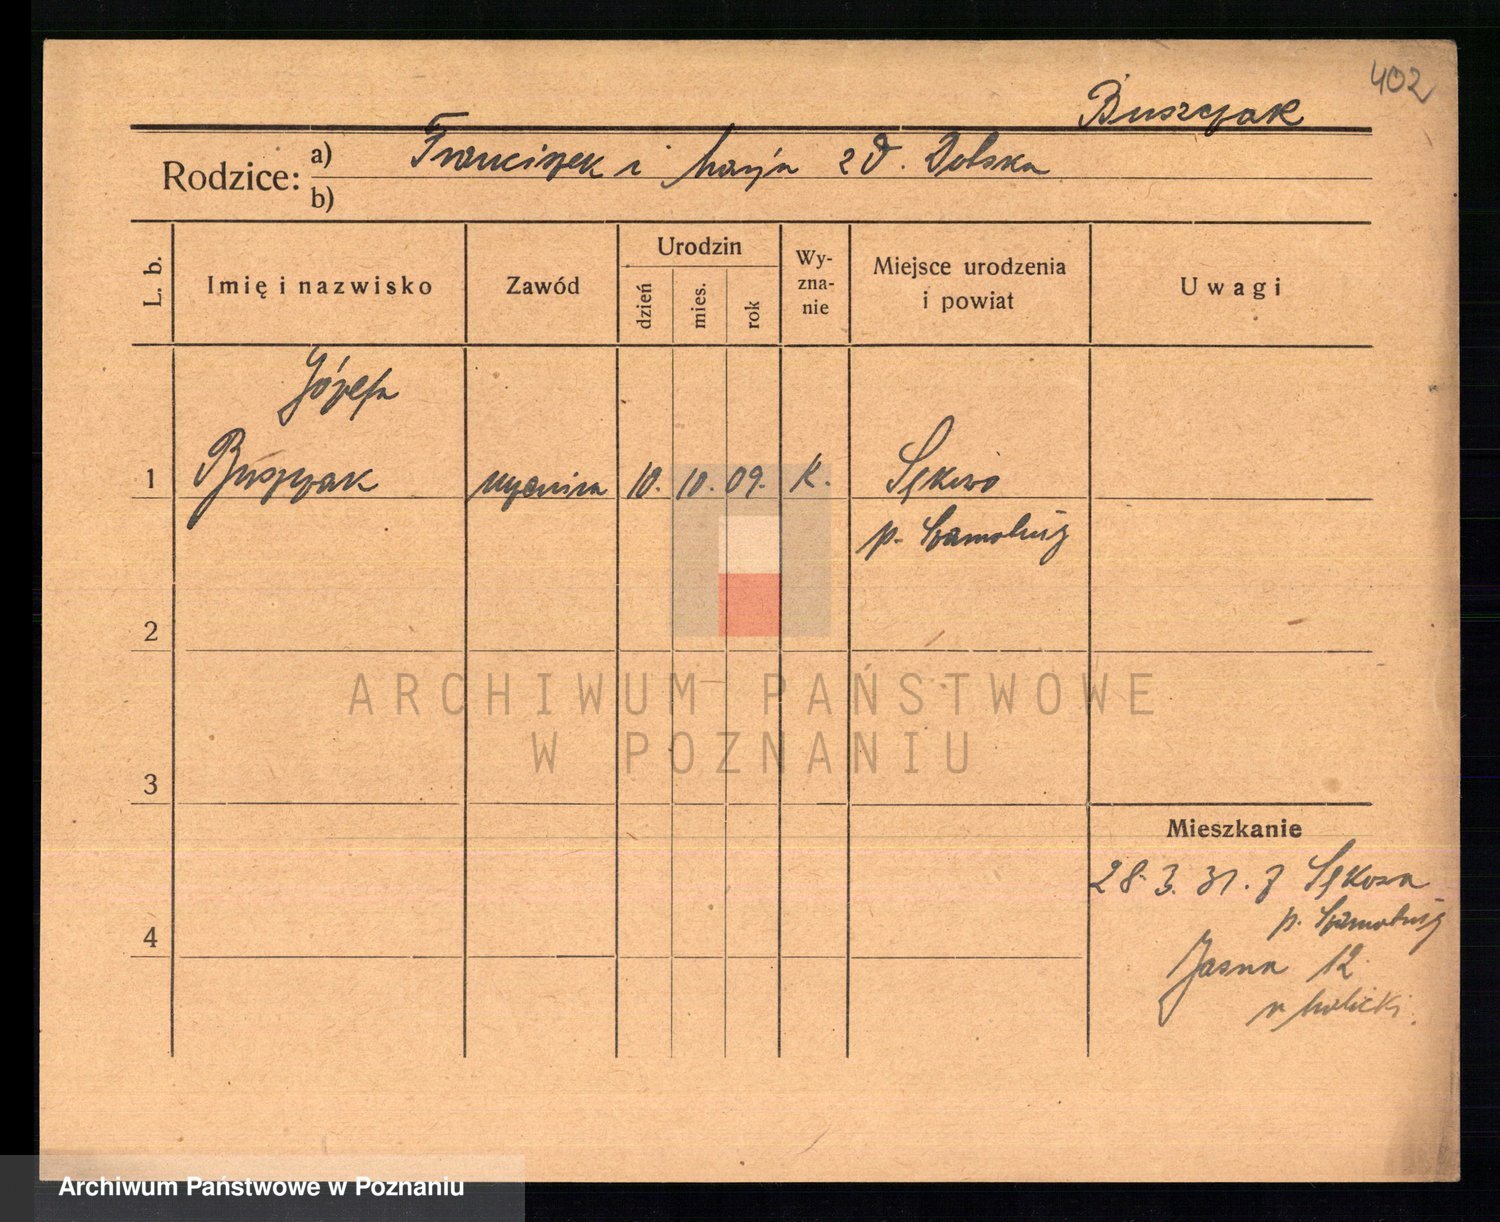 402
Buszczak
Rodzice: a) Franciszek i Marja z d. Dolska
b)
L. b. Imię i nazwisko Zawód Urodzin dzień mies. rok Wy-zna-nie Miejsce urodzenia i powiat Uwagi
Józefa
1 Buszczak uczenica 10. 10. 09. K. Sękowo
p. Szamotuły
2
ARCHIWUM PAŃSTWOWE
W POZNANIU
3
Mieszkanie
28. 3. 31. z Sękowa
p. Szamotuły
4
Jasna 12
Archiwum Państwowe w Poznaniu